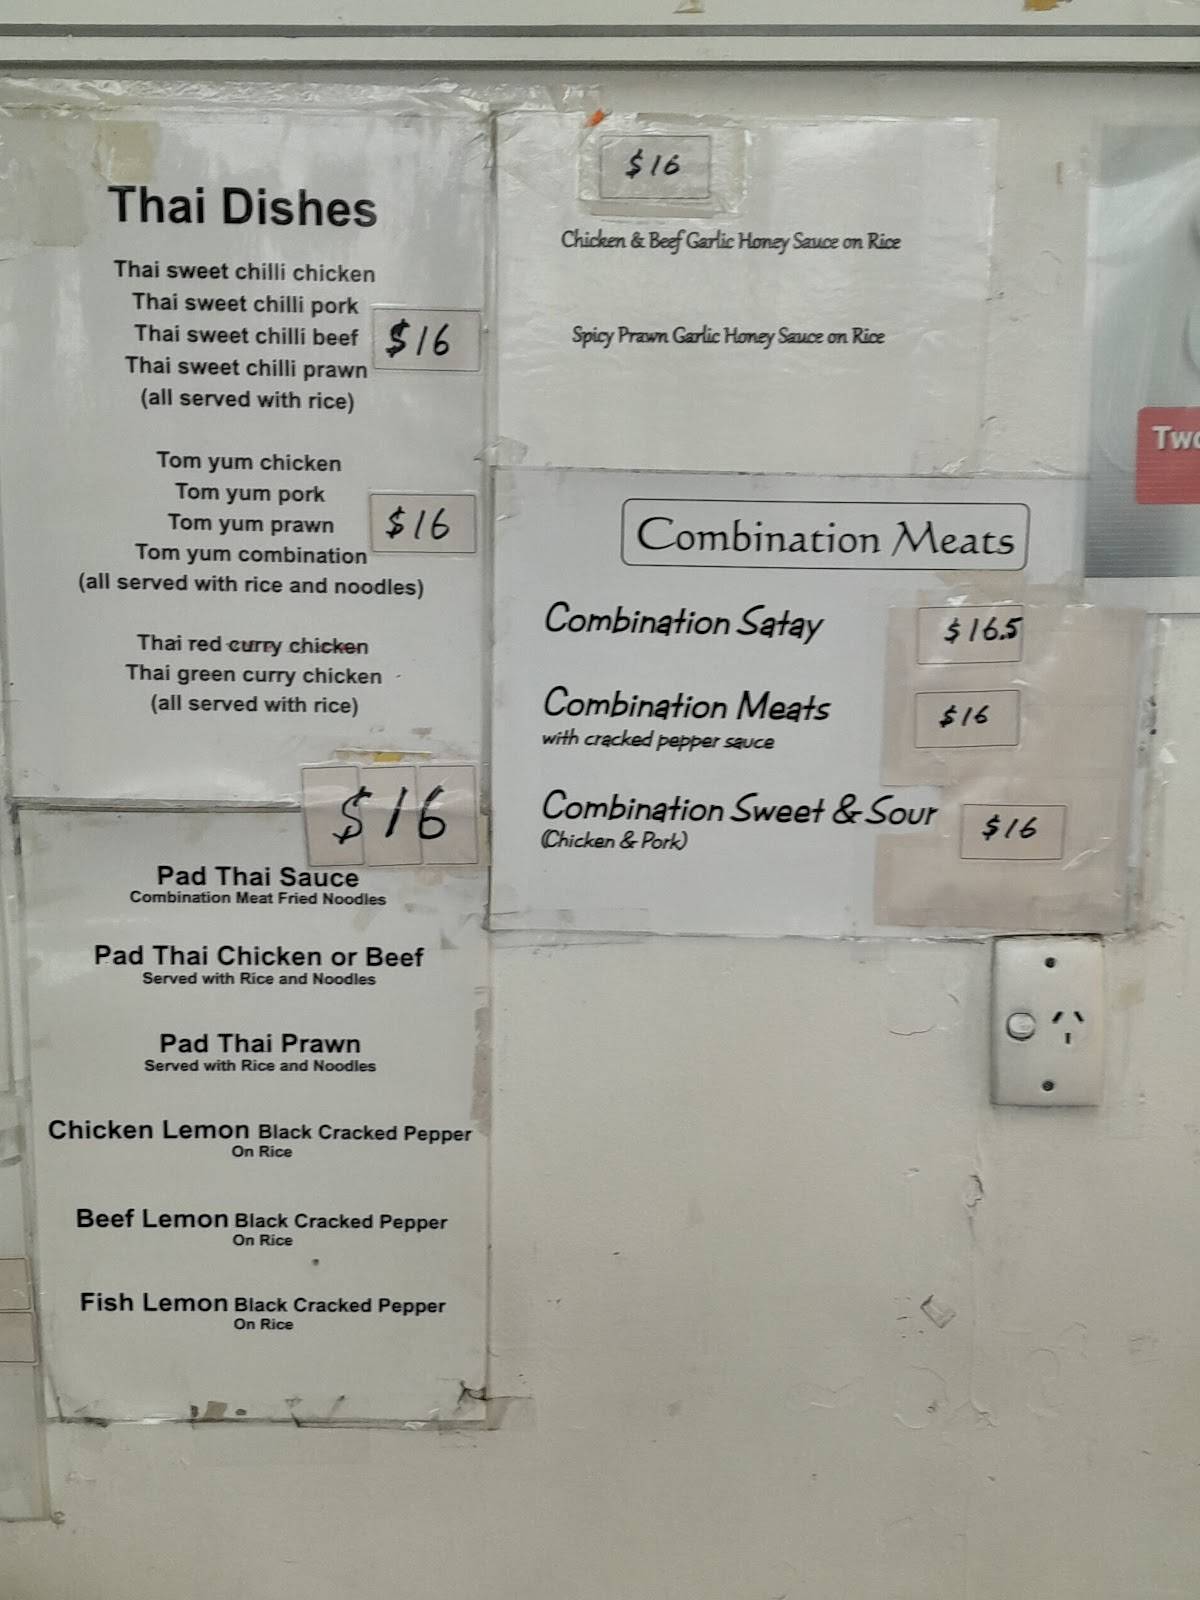 Thai Dishes
Thai sweet chilli chicken
Thai sweet chilli pork
Thai sweet chilli beef
Thai sweet chilli prawn
(all served with rice)
$16
Tom yum chicken
Tom yum pork
Tom yum prawn
Tom yum combination
(all served with rice and noodles)
$16
Thai red curry chicken
Thai green curry chicken
(all served with rice)
$16
Pad Thai Sauce
Combination Meat Fried Noodles
Pad Thai Chicken or Beef
Served with Rice and Noodles
Pad Thai Prawn
Served with Rice and Noodles
Chicken Lemon Black Cracked Pepper
On Rice
Beef Lemon Black Cracked Pepper
On Rice
Fish Lemon Black Cracked Pepper
On Rice
$16
Chicken & Beef Garlic Honey Sauce on Rice
Spicy Prawn Garlic Honey Sauce on Rice
Combination Meats
Combination Satay $16.5
Combination Meats $16
with cracked pepper sauce
Combination Sweet & Sour $16
(Chicken & Pork)